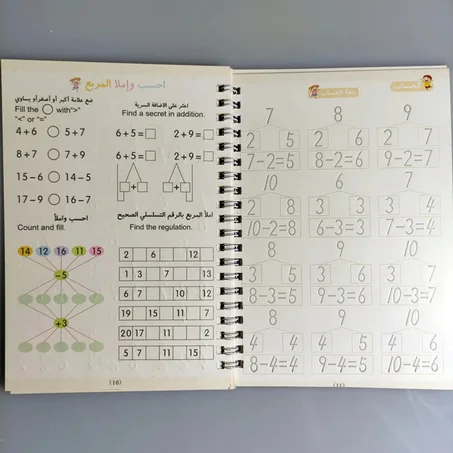 احسب وإملا المربع
ضع علامة أكبر أو أصغر أو يساوي
Fill the ○ with">"
"<" or "="
4+6 ○ 5+7
8+7 ○ 7+9
15-6 ○ 14-5
17-9 ○ 16-7
احسب واملأ
Count and fill.
14 12 16 11 15
-5
+3
اعثر على الاضافة السرية
Find a secret in addition.
6+5=□ 2+9=□
6+5=□ 2+9=□
□+□ □+□
املأ المربع بالرقم التسلسلي الصحيح
Find the regulation.
2 6 12
1 3 7 13
6 7 10 12
19 15 11 7
20 17 11 2
5 7 11 15
(10)
7 8 9
2 5 2 6 2 7
7-2=5 8-2=6 9-2=7
10 6 7
2 8 3 3 3 4
10-2=8 6-3=3 7-3=4
8 9 10
3 5 3 6 3 7
8-3=5 9-3=6 10-3=7
8 9 10
4 4 4 5 4 6
8-4=4 9-4=5 10-4=6
(11)